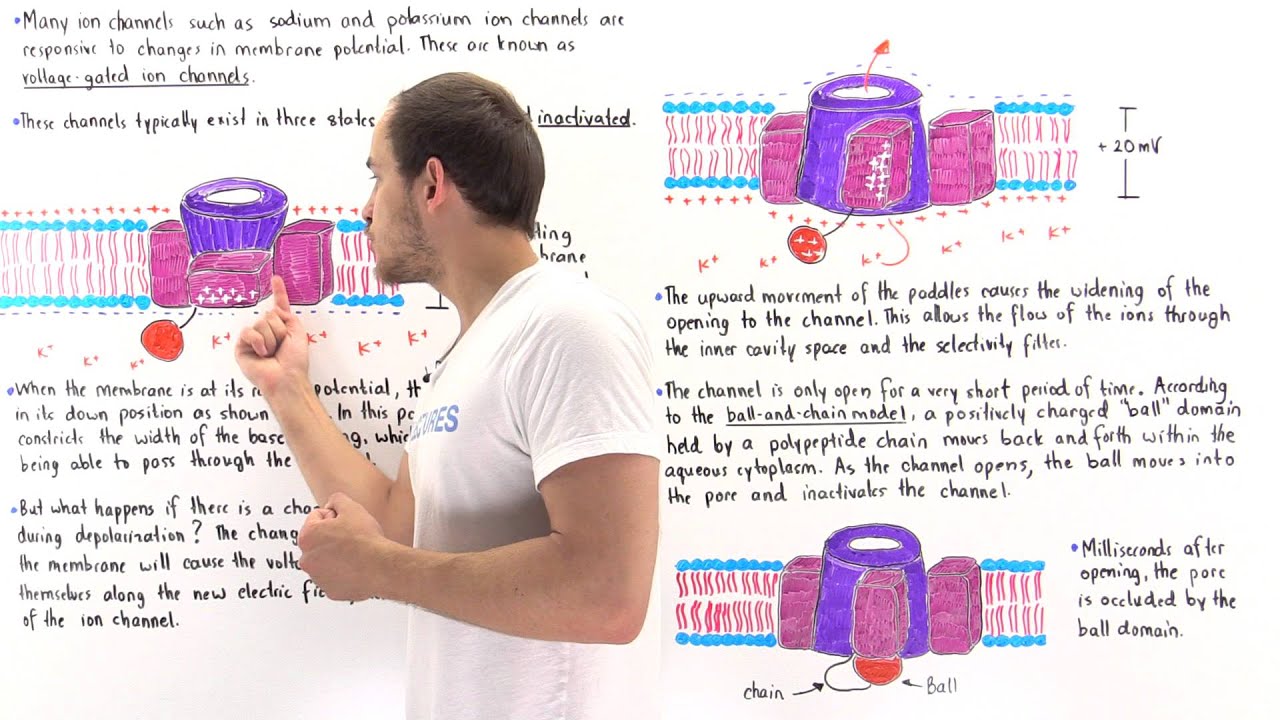 •Many ion channels such as sodium and potassium ion channels are
responsive to changes in membrane potential. These are known as
voltage-gated ion channels.
•These channels typically exist in three states
inactivated.
K+ K+ K+ K+ K+ K+ K+
•When the membrane is at its potential,
in its down position as shown In this
constricts the width of the base which
being able to pass through the
•But what happens if there is a
during depolarization? The
the membrane will cause the
themselves along the new electric
of the ion channel.
CURES
+20mV
K+ K+ K+ K+ K+ K+
•The upward movement of the paddles causes the widening of the
opening to the channel. This allows the flow of the ions through
the inner cavity space and the selectivity filter.
•The channel is only open for a very short period of time. According
to the ball-and-chain model, a positively charged "ball" domain
held by a polypeptide chain moves back and forth within the
aqueous cytoplasm. As the channel opens, the ball moves into
the pore and inactivates the channel.
•Milliseconds after
opening, the pore
is occluded by the
ball domain.
chain
Ball